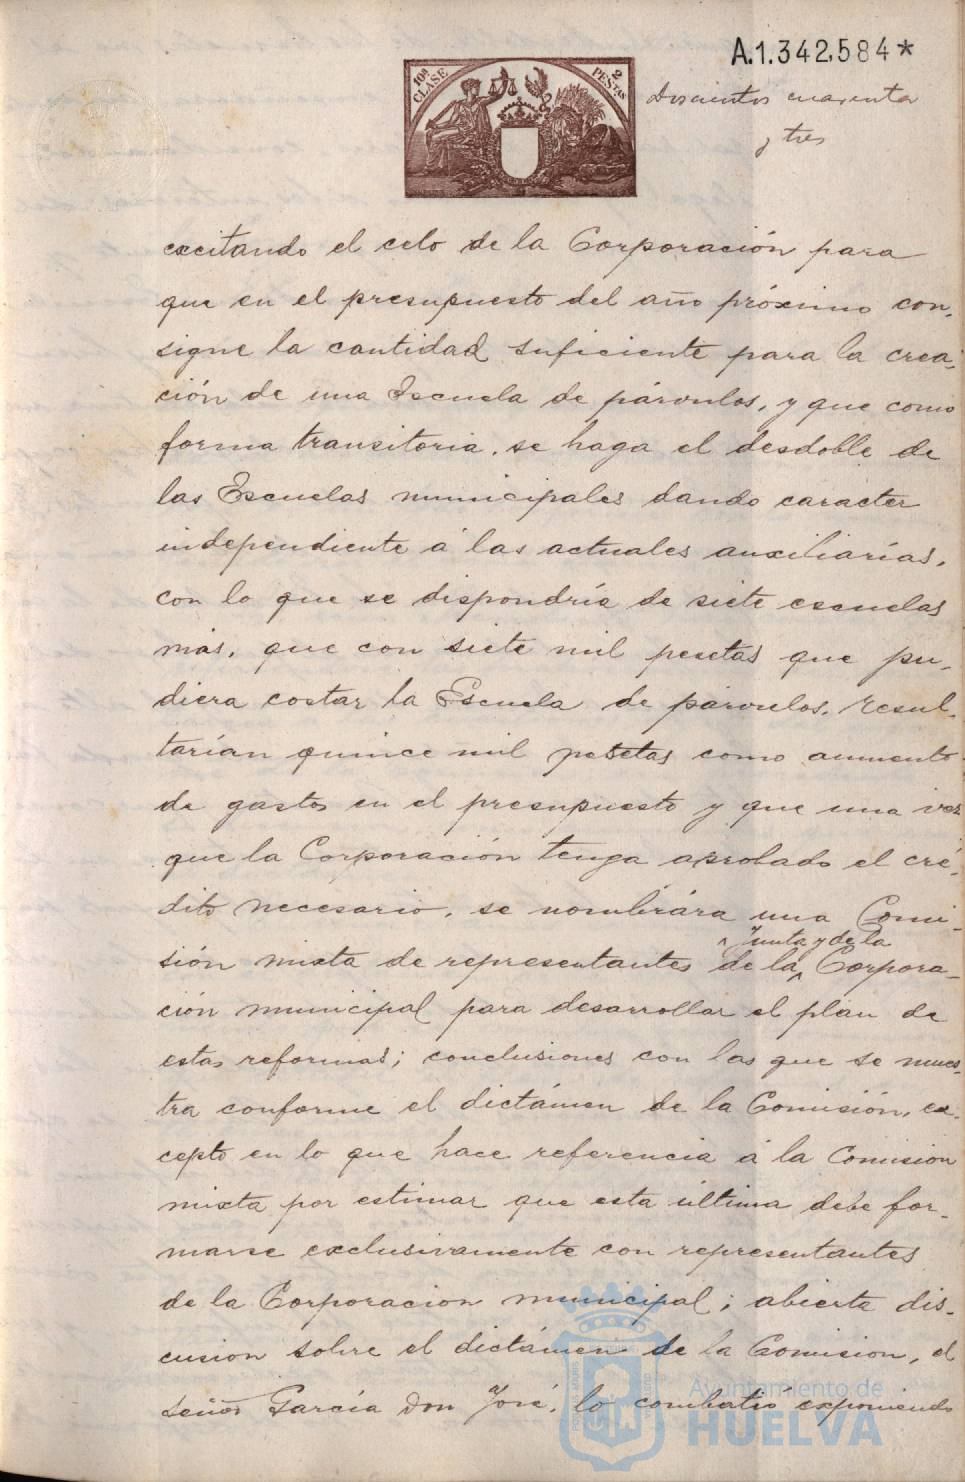 A.1.342,584*
10ª CLASE
2 PESTAS
Doscientos cuarenta
y tres
excitando el celo de la Corporación para
que en el presupuesto del año próximo con-
signe la cantidad suficiente para la crea-
ción de una Escuela de párvulos, y que como
forma transitoria, se haga el desdoble de
las Escuelas municipales dando caracter
independiente á las actuales auxiliarías,
con lo que se dispondría de siete escuelas
más, que con siete mil pesetas que pu-
diera costar la Escuela de párvulos, resul-
tarían quince mil pesetas como aumento
de gastos en el presupuesto y que una vez
que la Corporación tenga aprobado el cré-
dito necesario, se nombrára una Comi-
Junta y de la
sión mixta de representantes de la Corpora-
ción municipal para desarrollar el plan de
estas reformas; conclusiones con las que se mues-
tra conforme el dictámen de la Comisión, ex-
cepto en lo que hace referencia á la Comision
mixta por estimar que esta última debe for-
marse exclusivamente con representantes
de la Corporacion municipal; abierta dis-
cusion sobre el dictámen de la Comision, el
señor García Don José, lo combatió exponiendo
Ayuntamiento de
HUELVA